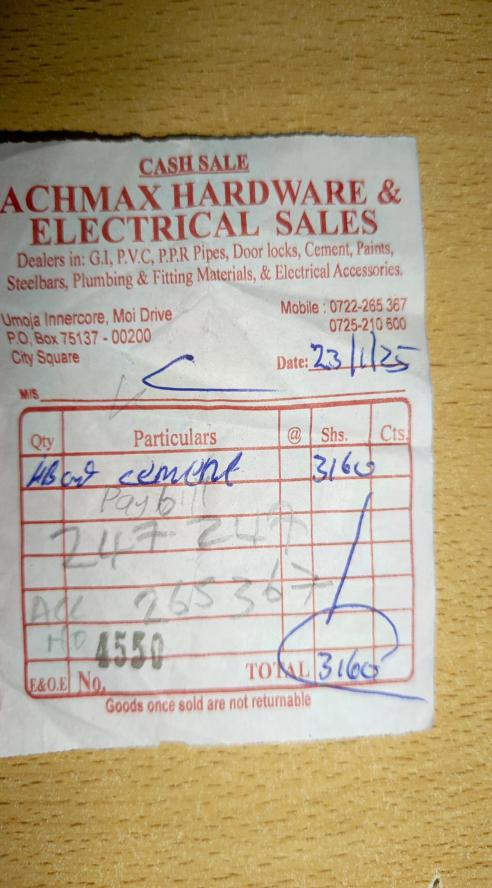 CASH SALE
ACHMAX HARDWARE &
ELECTRICAL SALES
Dealers in: G.I, P.V.C, P.P.R Pipes, Door locks, Cement, Paints,
Steelbars, Plumbing & Fitting Materials, & Electrical Accessories.
Umoja Innercore, Moi Drive
P.O, Box 75137 - 00200
City Square
Mobile : 0722-265 367
0725-210 600
Date: 23/1/25
M/S
Qty Particulars @ Shs. Cts.
cement 3160
Paybill
247 247
ACC 265367
NO
4550
E&O.E No. TOTAL 3160
Goods once sold are not returnable